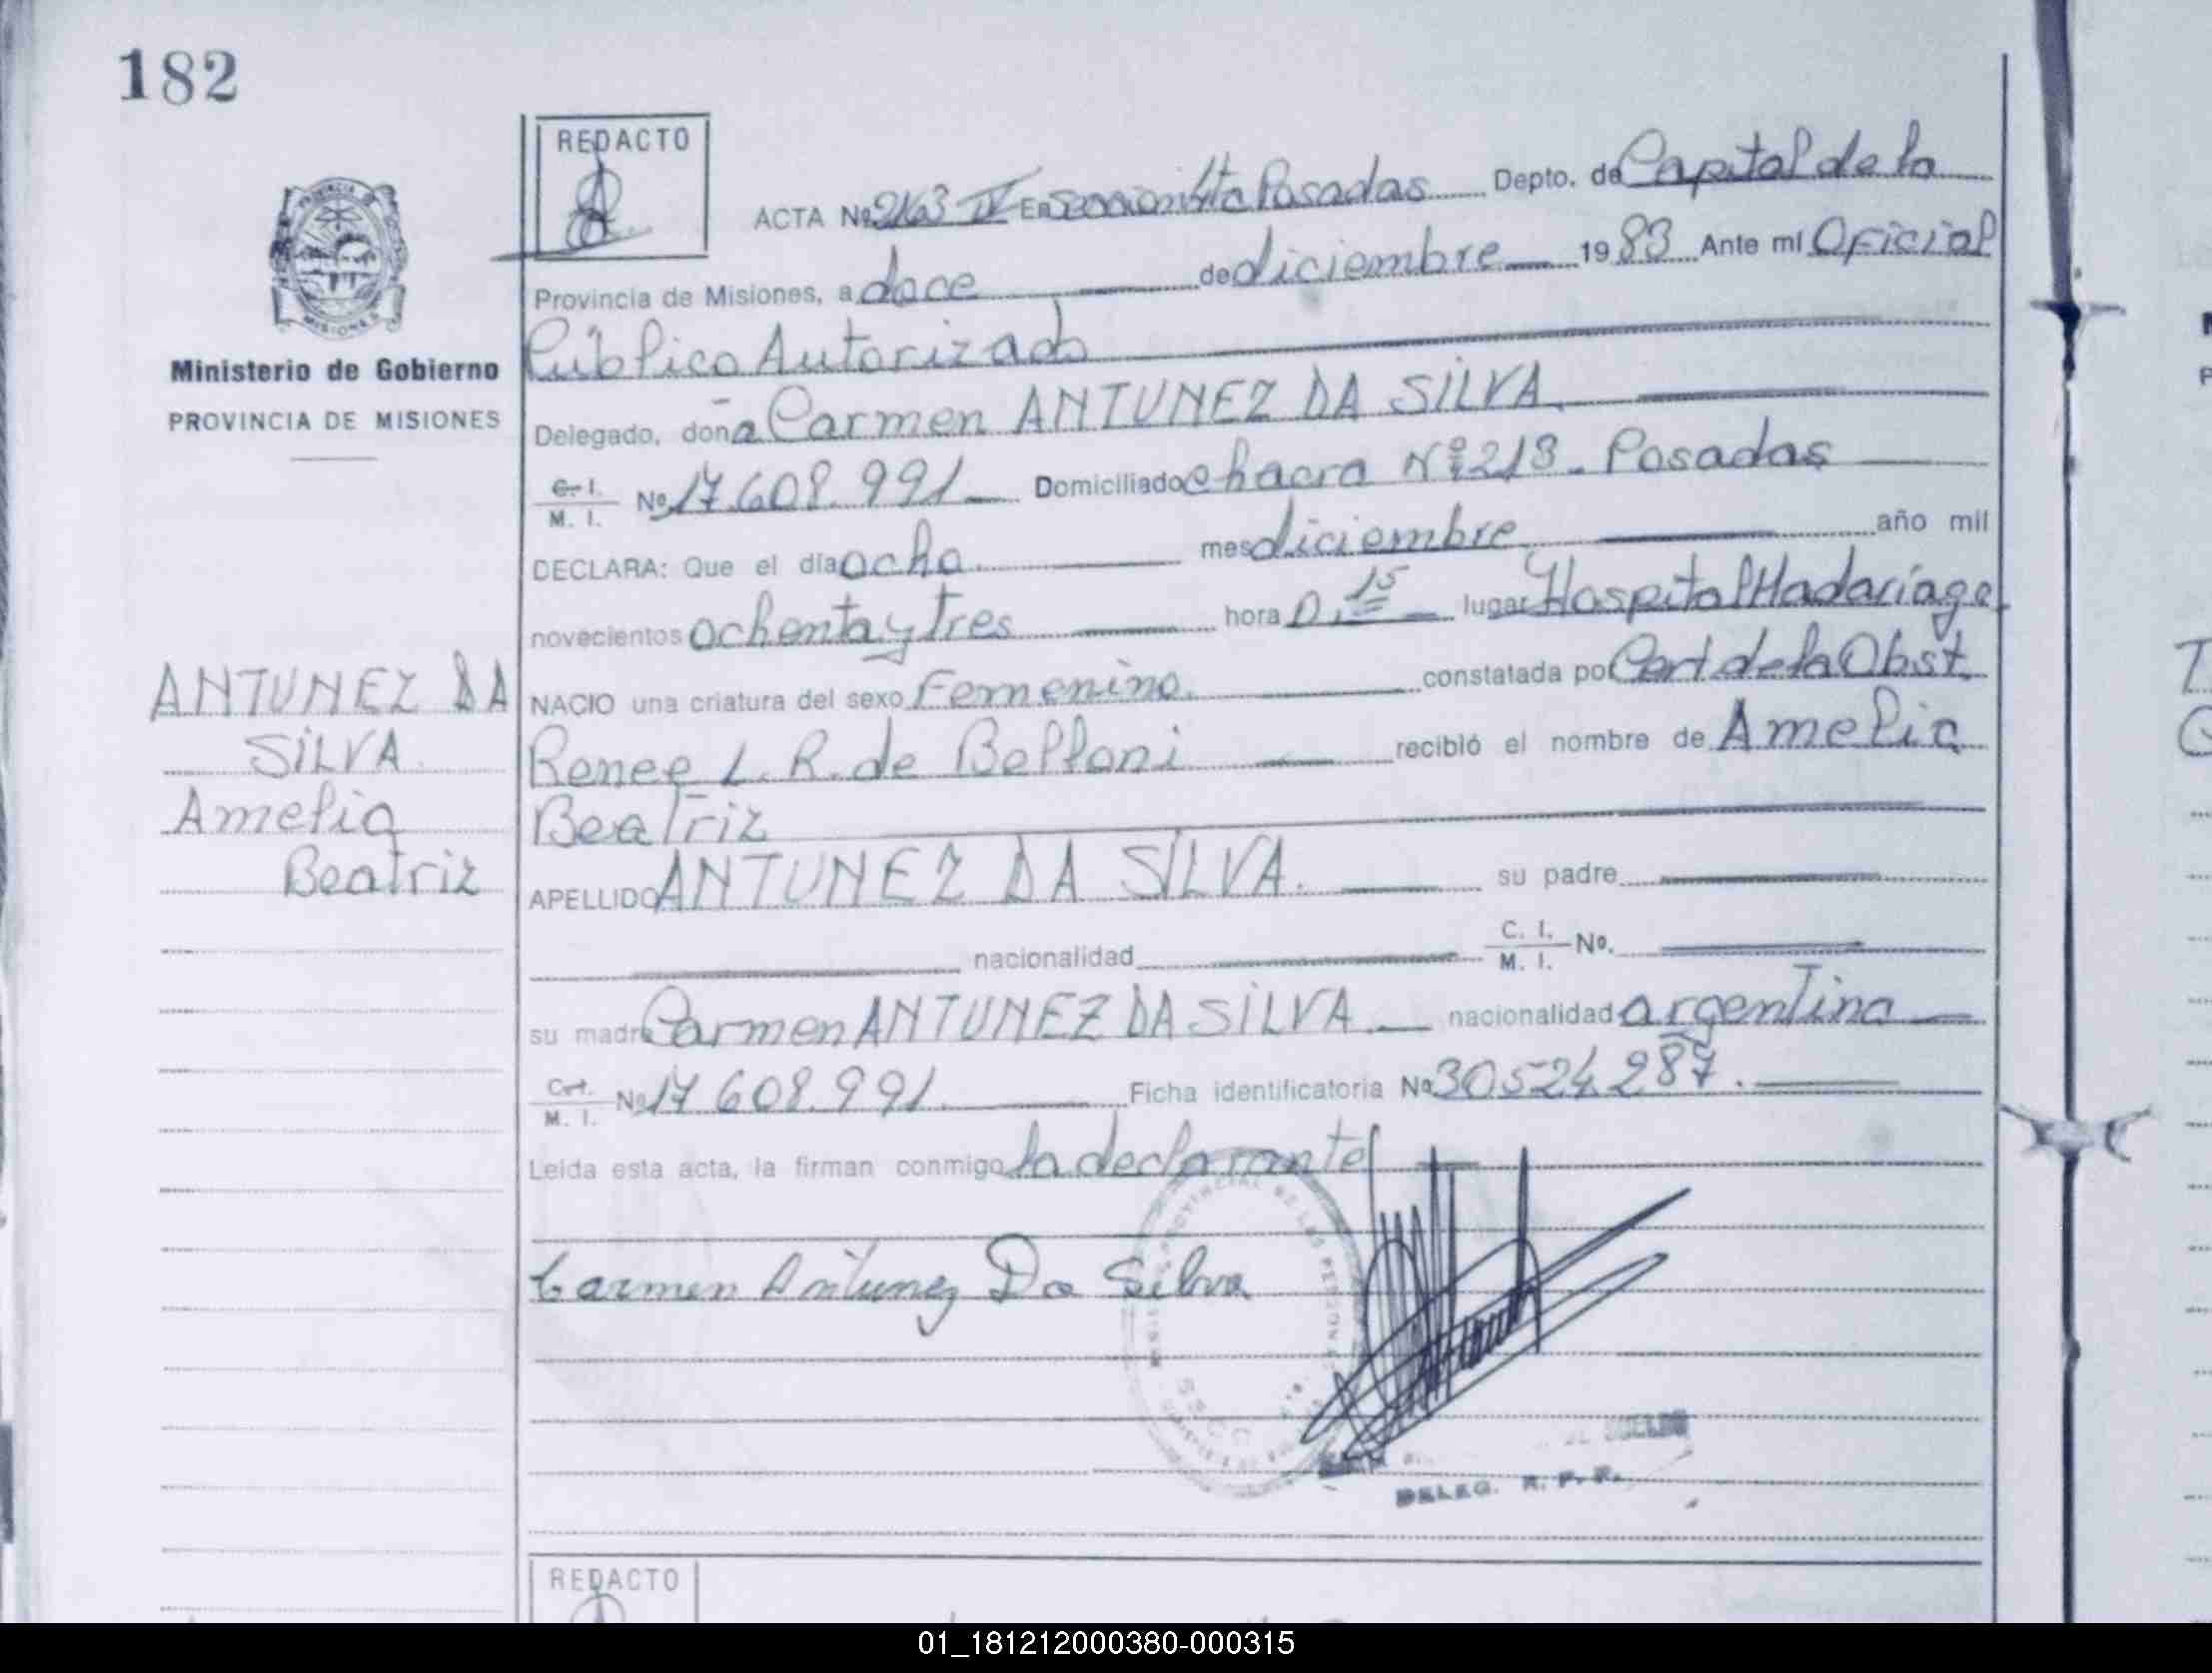 182
REDACTO
ACTA Nº 2163 IV En Posadas Depto. de Capital de la
Provincia de Misiones, a doce de diciembre 1983 Ante mi Oficial
Público Autorizado
Delegado, doña Carmen ANTUNEZ DA SILVA.
C. I. M. I. Nº 17.608.991 Domiciliado chacra Nº 218 - Posadas
DECLARA: Que el día ocho mes diciembre año mil
novecientos ochenta y tres hora 0.15 lugar Hospital Madariaga
NACIO una criatura del sexo Femenino. constatada por Cert de la Obst.
Renee L. R. de Belloni recibió el nombre de Amelia
Beatriz
APELLIDO ANTUNEZ DA SILVA. su padre
nacionalidad C. I. M. I. Nº.
su madre Carmen ANTUNEZ DA SILVA. nacionalidad argentina
C. I. M. I. Nº 17 608.991. Ficha identificatoria Nº 30524287.
Leida esta acta, la firman conmigo la declarante
Carmen Antunez Da Silva
DELEG. R. P. P.
PROVINCIA
MISIONES
Ministerio de Gobierno
PROVINCIA DE MISIONES
ANTUNEZ DA
SILVA.
Amelia
Beatriz
REDACTO
01_181212000380-000315